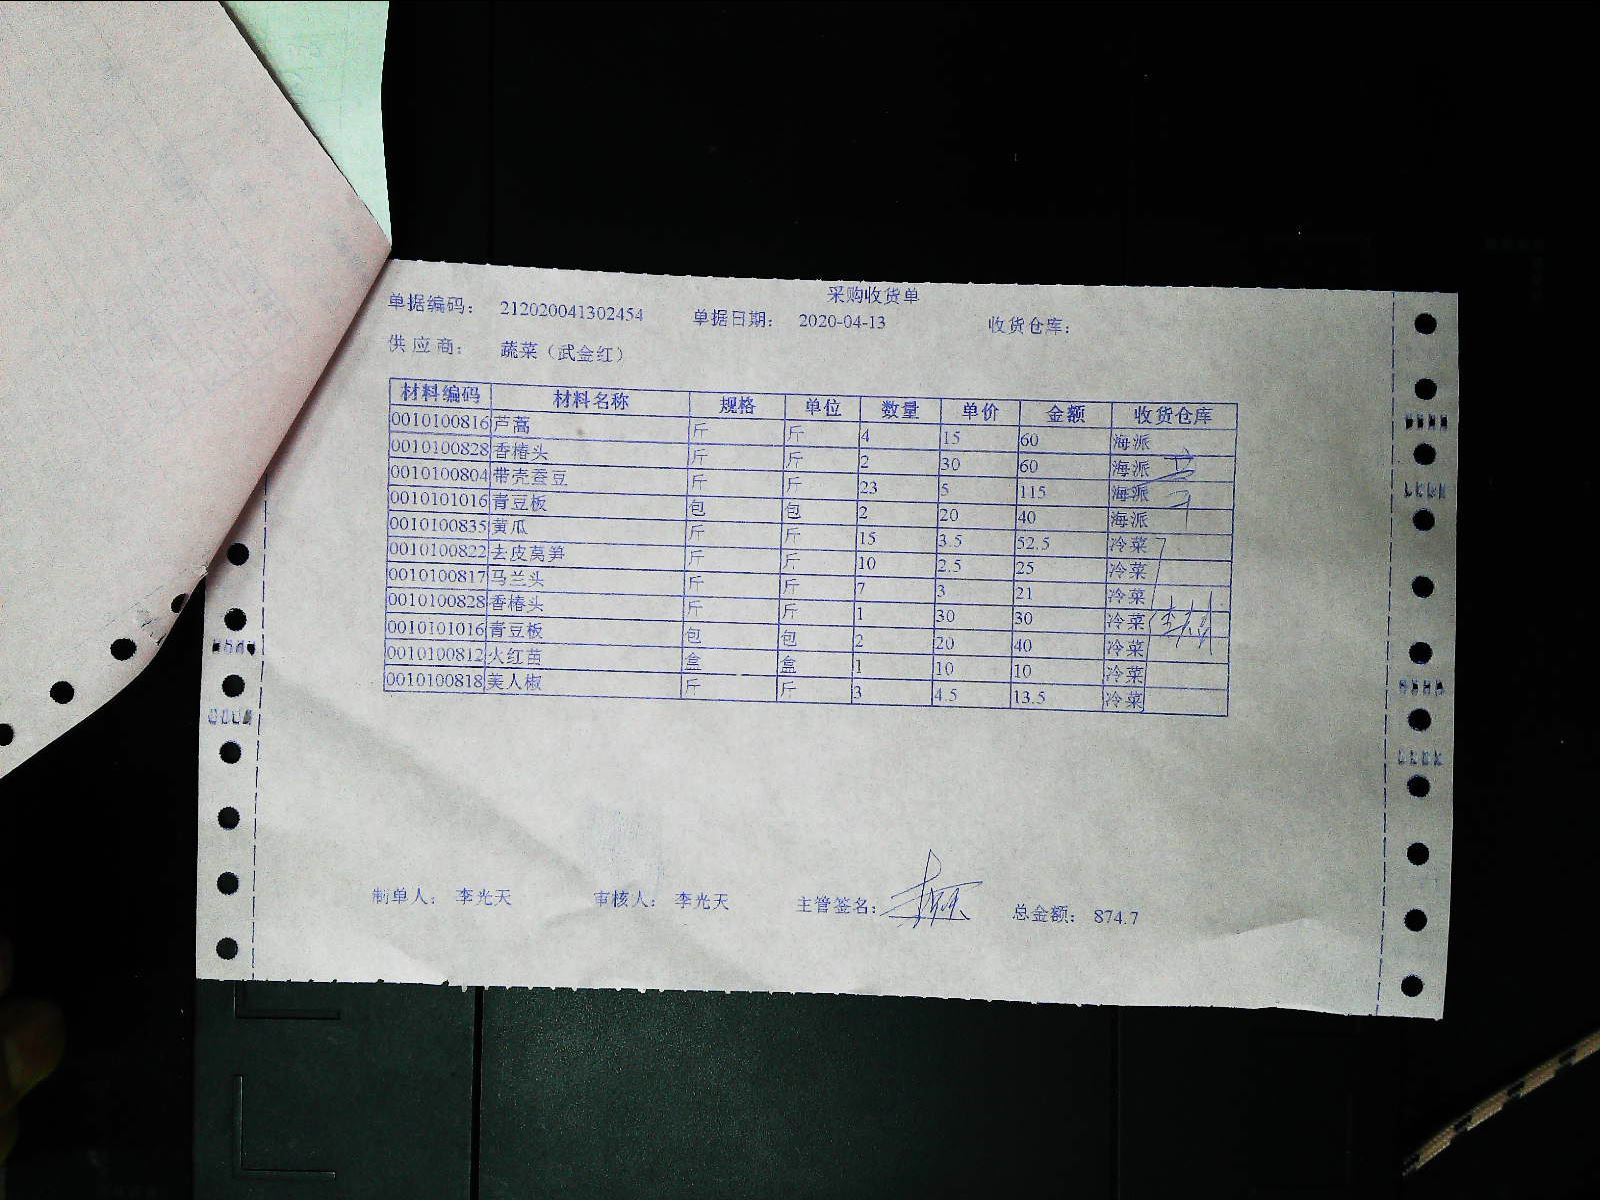 采购收货单
单据编码： 212020041302454 单据日期： 2020-04-13 收货仓库：
供 应 商： 蔬菜（武金红）
材料编码 材料名称 规格 单位 数量 单价 金额 收货仓库
0010100816 芦蒿 斤 斤 4 15 60 海派
0010100828 香椿头 斤 斤 2 30 60 海派
0010100804 带壳蚕豆 斤 斤 23 5 115 海派
0010101016 青豆板 包 包 2 20 40 海派
0010100835 黄瓜 斤 斤 15 3.5 52.5 冷菜
0010100822 去皮莴笋 斤 斤 10 2.5 25 冷菜
0010100817 马兰头 斤 斤 7 3 21 冷菜
0010100828 香椿头 斤 斤 1 30 30 冷菜
0010101016 青豆板 包 包 2 20 40 冷菜
0010100812 火红苗 盒 盒 1 10 10 冷菜
0010100818 美人椒 斤 斤 3 4.5 13.5 冷菜
制单人： 李光天 审核人： 李光天 主管签名： 总金额： 874.7